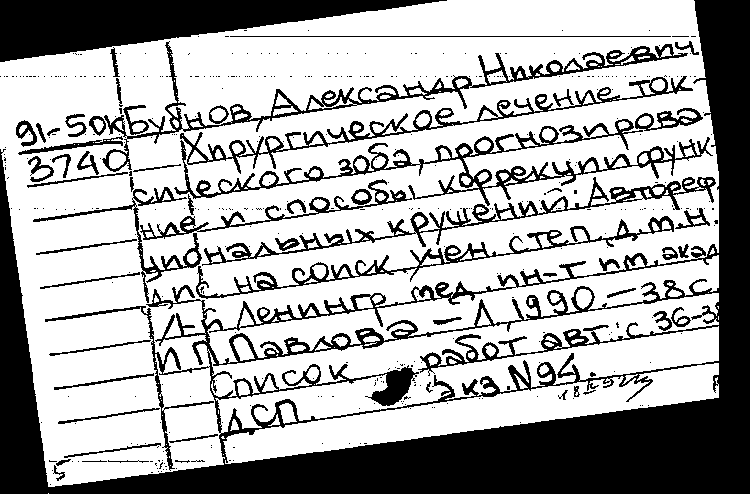 91-50к Бубнов, Александр Николаевич
3740 Хирургическое лечение ток-
сического зоба, прогнозирова-
ние и способы коррекции функ-
циональных крушений: Автореф.
дис. на соиск. учен. степ. д.м.н.
Л-д Ленингр мед. ин-т им. акад
И.П.Павлова. – Л, 1990. – 38 с.
Список работ авт.: с. 36-38
ДСП. Экз. N94.
5